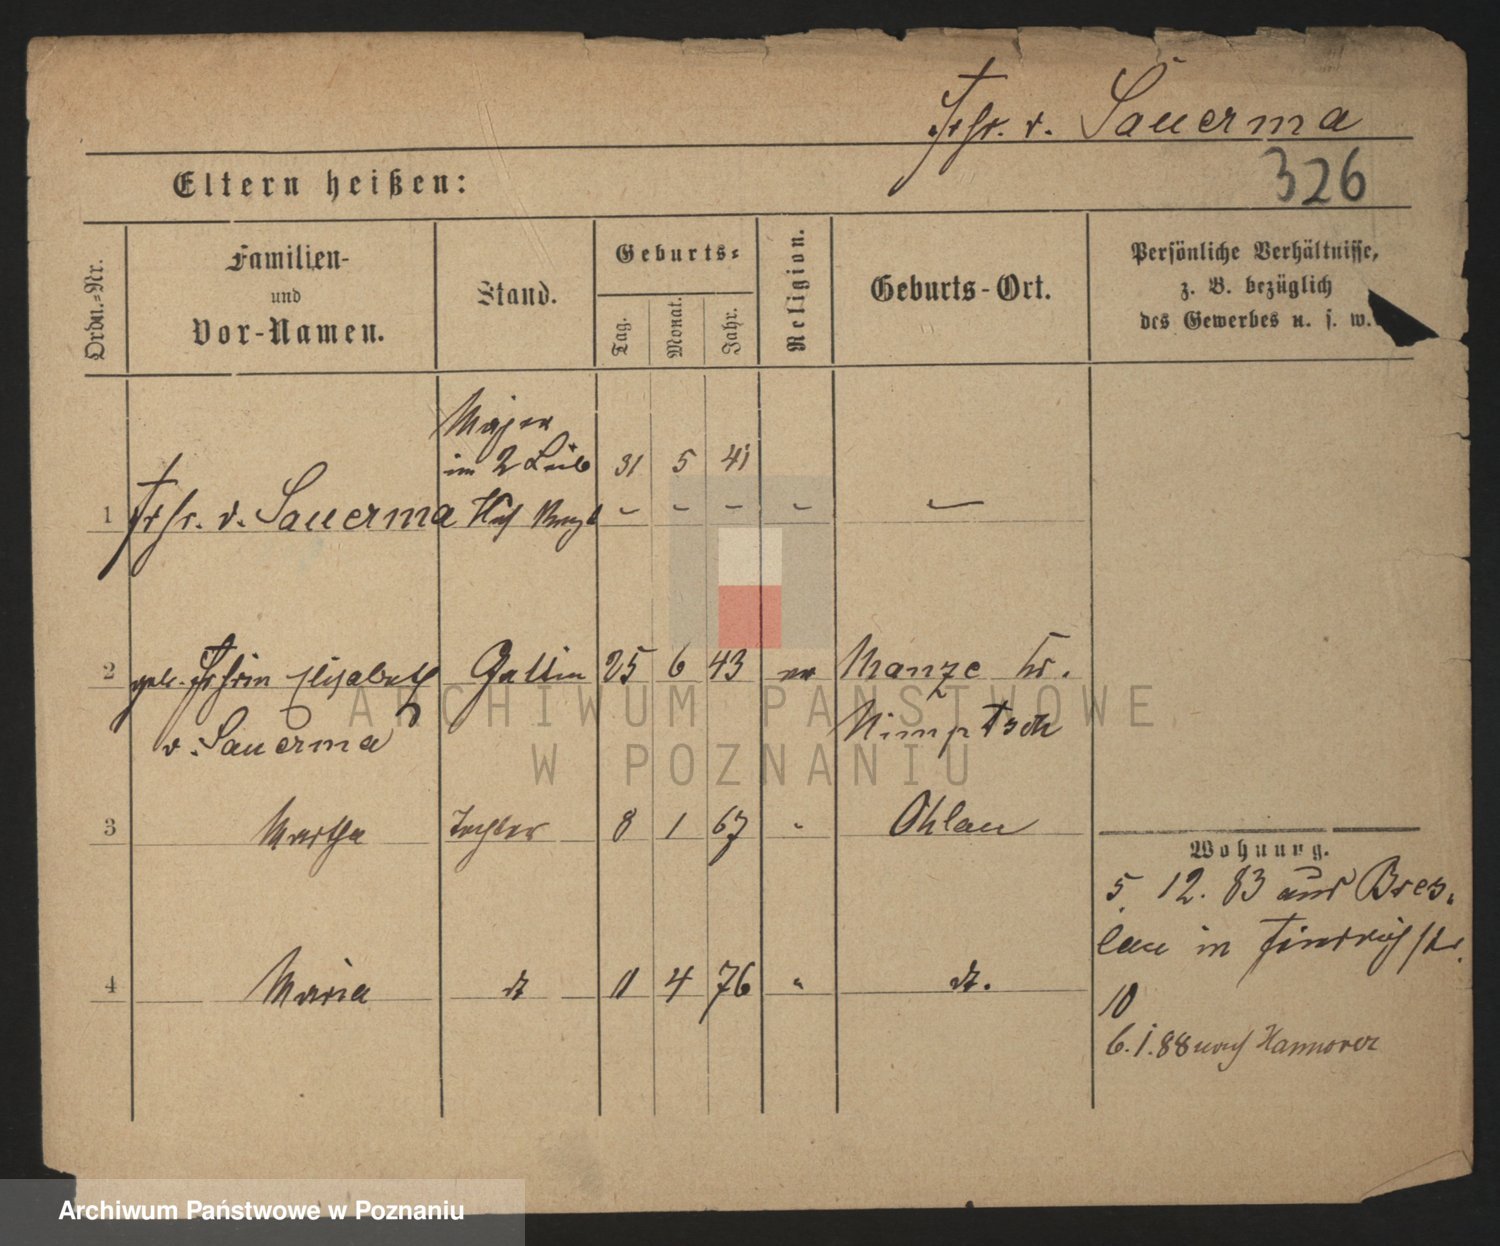 Frhr. v. Sauerma
326
Eltern heißen:
Ordn.-Nr.
Familien-
und
Vor-Namen.
Stand.
Geburts-
Tag.
Monat.
Jahr.
Religion.
Geburts-Ort.
Persönliche Verhältnisse,
z. B. bezüglich
des Gewerbes u. s. w.
Major
im 2 Leib 31 5 41
1 Frhr. v. Sauerma Hus Rmgt - - - - -
2 geb. Frhrin Elisabeth Gattin 25 6 43 ev Manze Kr.
v. Sauerma Nimptsch
3 Martha Tochter 8 1 67 " Ohlau
Wohnung.
5. 12. 83 aus Bres-
lau in Friedrichstr.
4 Maria dt 11 4 76 " dt.
10
6.1.88 nach Hannover
ARCHIWUM PAŃSTWOWE
W POZNANIU
Archiwum Państwowe w Poznaniu